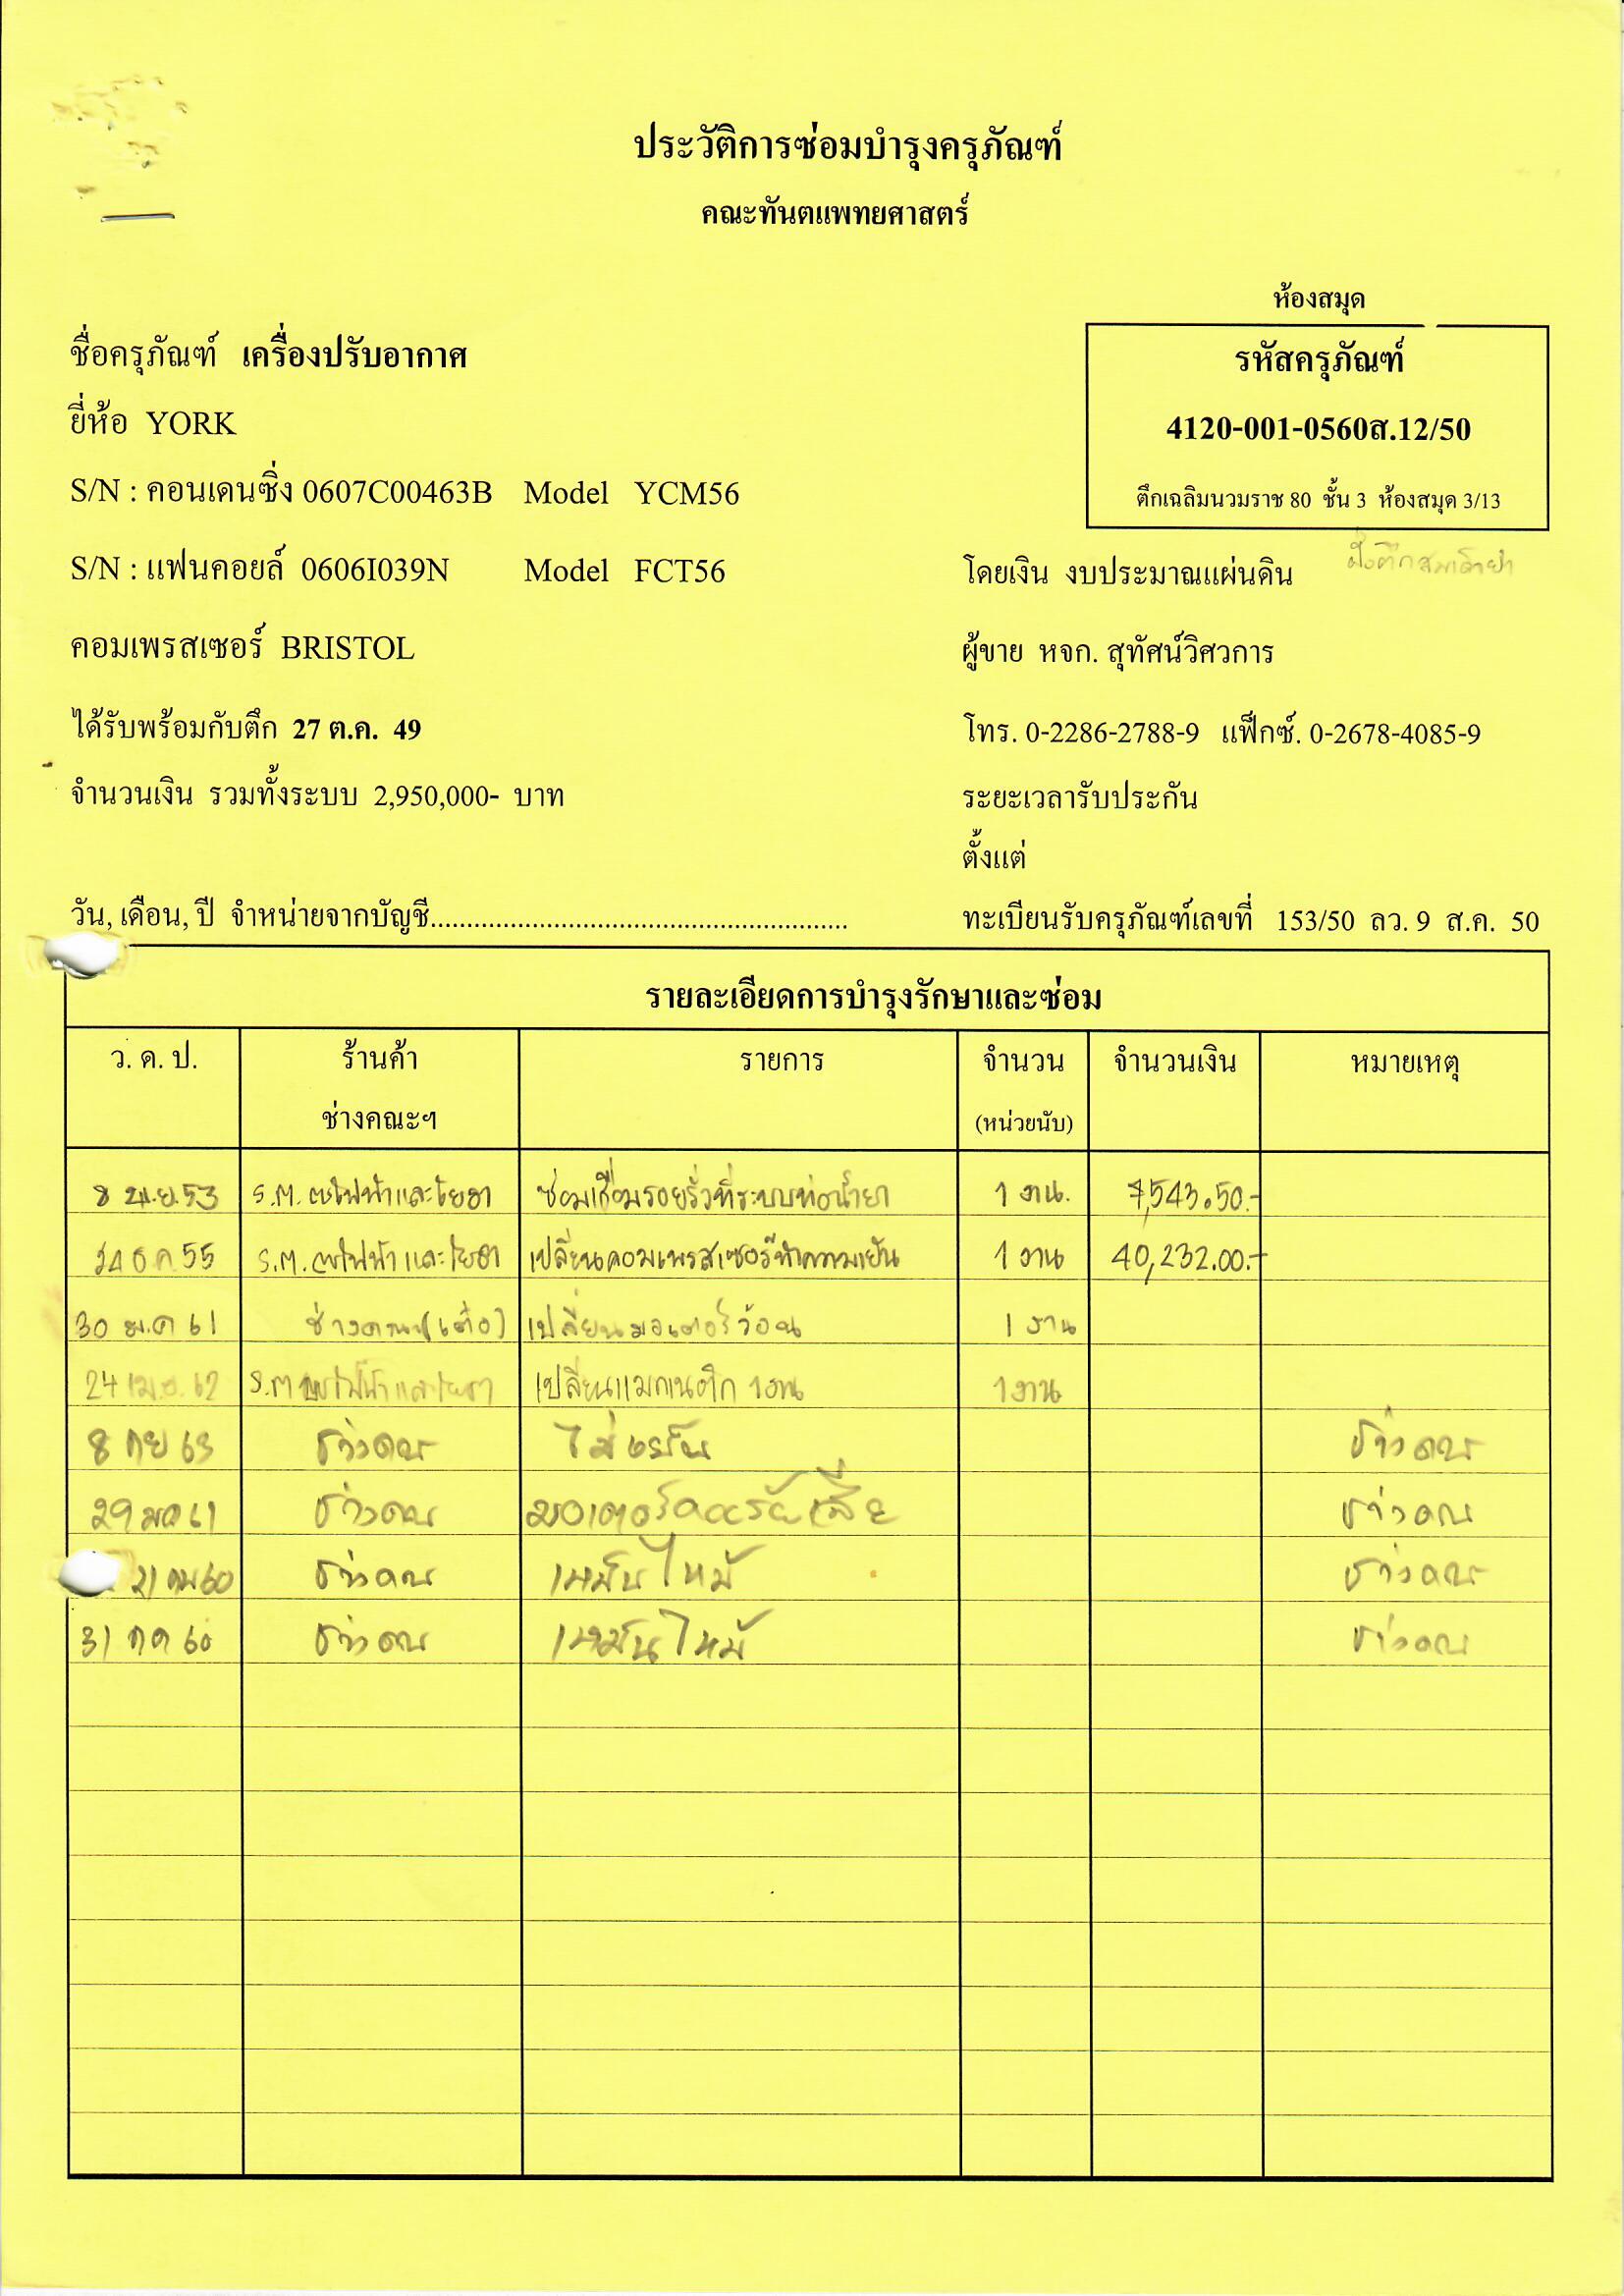 ประวัติการซ่อมบำรุงครุภัณฑ์
คณะทันตแพทยศาสตร์
ห้องสมุด
ชื่อครุภัณฑ์ เครื่องปรับอากาศ
รหัสครุภัณฑ์
ยี่ห้อ YORK
4120-001-0560ส.12/50
S/N : คอนเดนซิ่ง 0607C00463B Model YCM56
ตึกเฉลิมนวมราช 80 ชั้น 3 ห้องสมุด 3/13
S/N : แฟนคอยล์ 0606I039N Model FCT56
โดยเงิน งบประมาณแผ่นดิน
คอมเพรสเซอร์ BRISTOL
ผู้ขาย หจก. สุทัศน์วิศวการ
ได้รับพร้อมกับตึก 27 ต.ค. 49
โทร. 0-2286-2788-9 แฟ็กซ์. 0-2678-4085-9
จำนวนเงิน รวมทั้งระบบ 2,950,000- บาท
ระยะเวลารับประกัน
ตั้งแต่
วัน, เดือน, ปี จำหน่ายจากบัญชี.........................................................
ทะเบียนรับครุภัณฑ์เลขที่ 153/50 ลว. 9 ส.ค. 50
รายละเอียดการบำรุงรักษาและซ่อม
ว. ด. ป. ร้านค้า รายการ จำนวน จำนวนเงิน หมายเหตุ
ช่างคณะฯ (หน่วยนับ)
S.M. ไฟฟ้าและโยธา ซ่อมเชื่อมรอยรั่วที่ระบบท่อน้ำยา 1 งาน. 7,543.50.-
24 ธ.ค. 55 S.M. ไฟฟ้าและโยธา เปลี่ยนคอมเพรสเซอร์ทำความเย็น 1 งาน 40,232.00.-
30 ม.ค 61 ช่างคณะ เปลี่ยนมอเตอร์ร้อน 1 งาน
24 เม.ย. 62 S.M ไฟฟ้าและโยธา เปลี่ยนแมกเนติก 1 งาน 1 งาน
8 กย 63 ช่างคณะ ไม่เย็น ช่างคณะ
29 มค 61 ช่างคณะ ช่างคณะ
21 กพ 60 ช่างคณะ เหม็นไหม้ ช่างคณะ
31 กค 60 ช่างคณะ เหม็นไหม้ ช่างคณะ